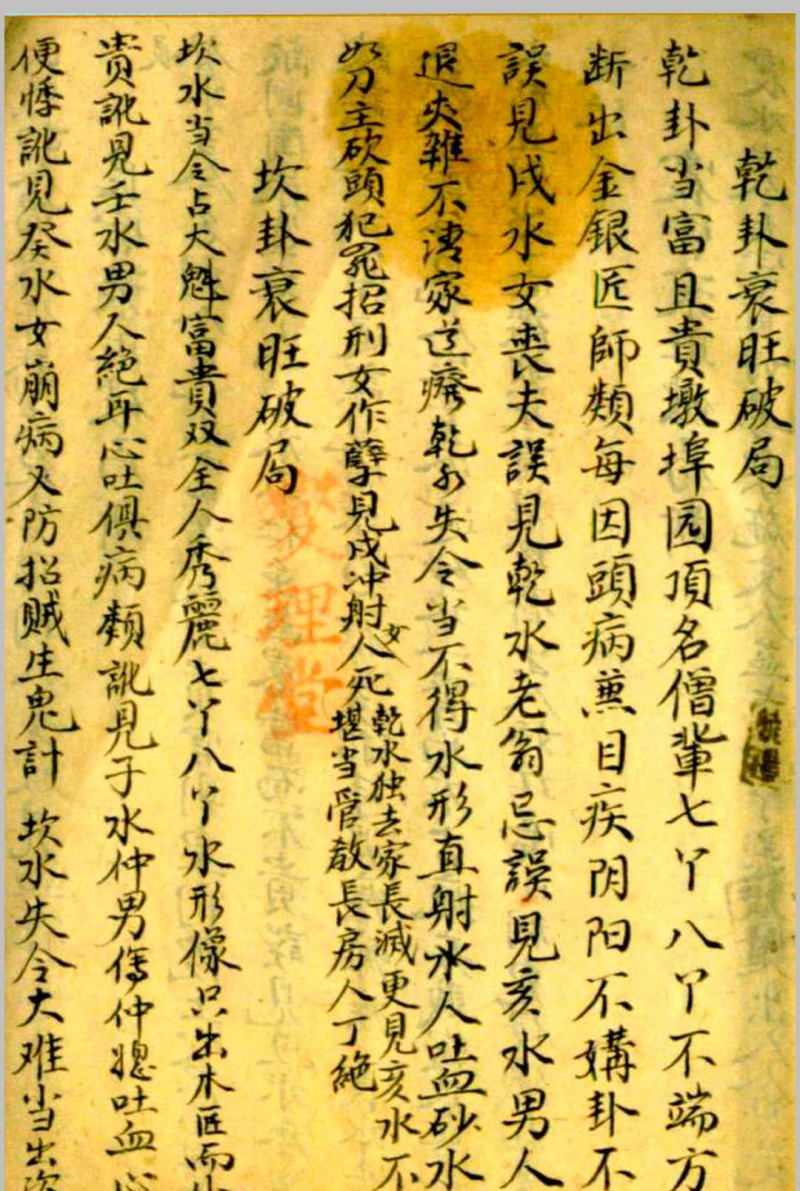 乾卦衰旺破局
乾卦当富且貴墩埠园頂名僧輩七丫八丫不端方
断出金銀匠師類每因頭病蔗目疾阴阳不媾卦不
誤見戌水女喪夫誤見乾水老翁忌誤見亥水男人
退夾雜不清家道癆乾水失令当不得水形直射水人吐血砂水
如刀主砍頭犯罪招刑女作孽見戌冲射人女死乾水独去家長减更見亥水不
堪当管教長房人丁絶
坎卦衰旺破局
坎水当令占大魁富貴双全人秀麗七丫八丫水形像只出木匠而
貴訛見壬水男人絶耳心吐俱病類訛見子水仲男傷仲媳吐血心
便悸訛見癸水女崩病又防招賊生鬼計 坎水失令大难当出
數理堂